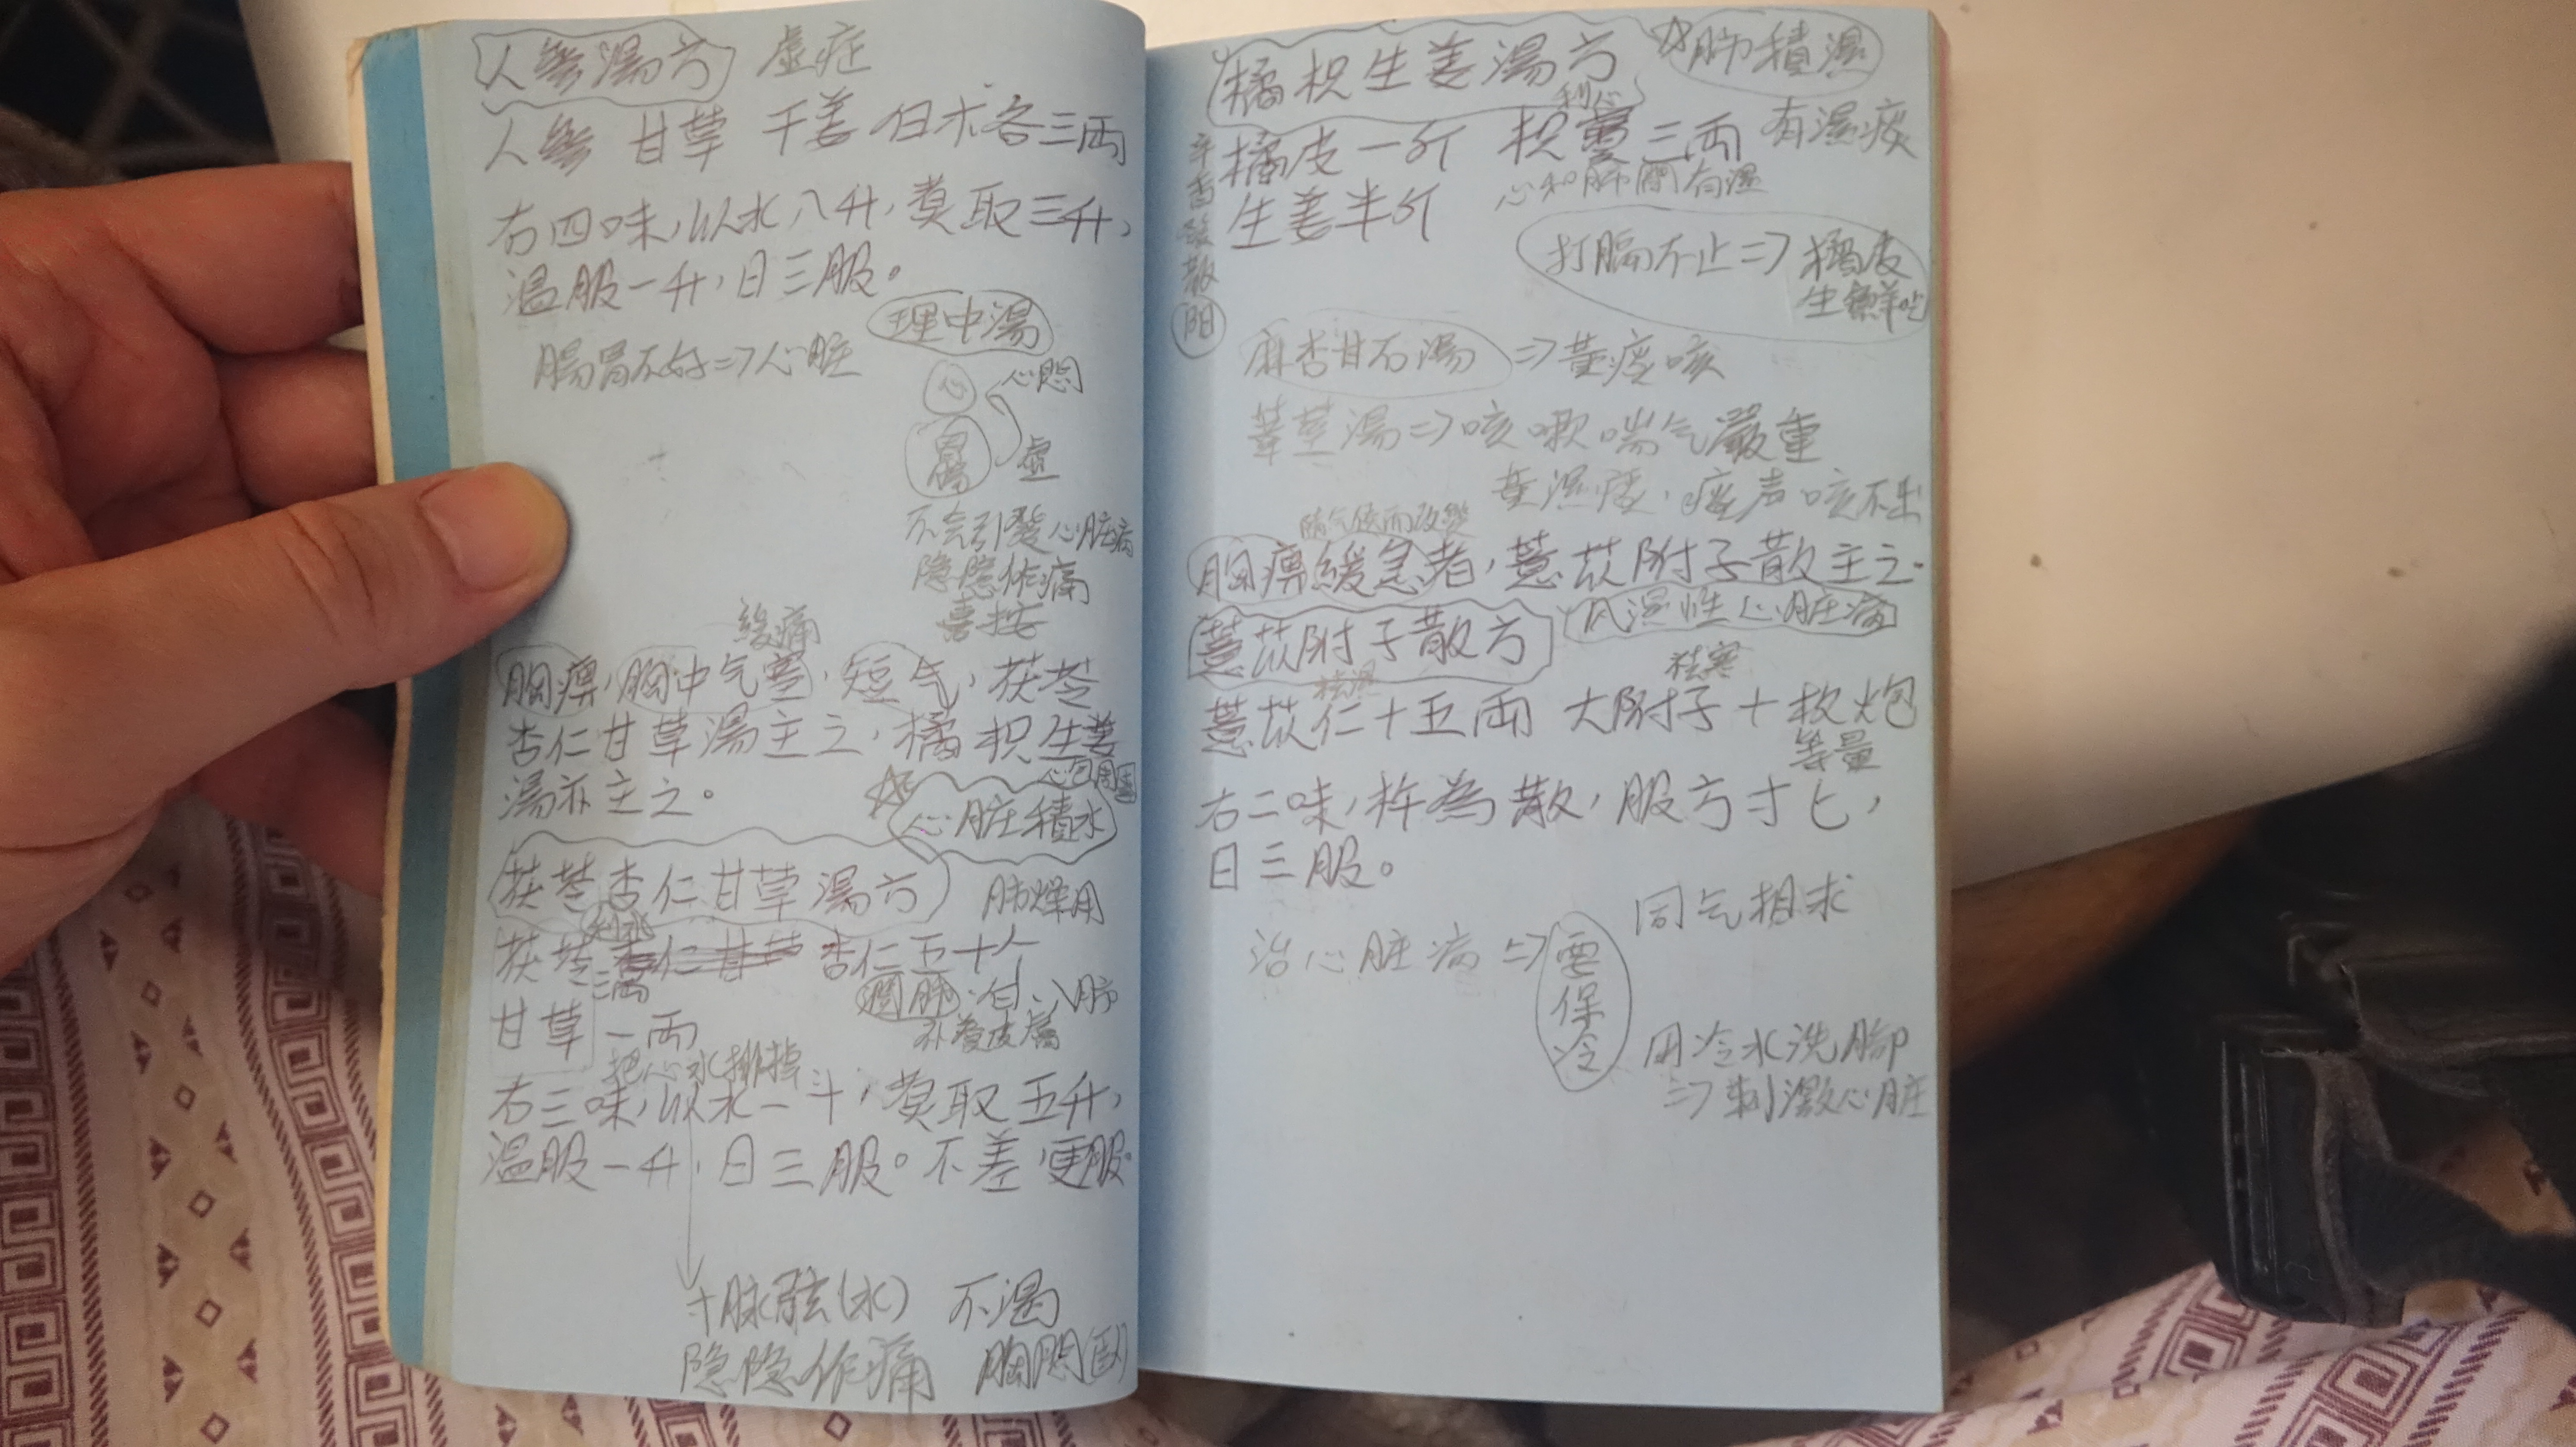 人參湯方 虛症
人參 甘草 干姜 白朮各三両
右四味,以水八升,煑取三升,
温服一升,日三服。
理中湯
腸胃不好⇒心脏
心 心悶
胃腸 虛
不会引發心脏病
隐隐作痛
喜按
緩痛
胸痹,胸中气塞,短气,茯苓
杏仁甘草湯主之,橘枳生姜
湯亦主之。
心包周圍
☆心脏積水
茯苓杏仁甘草湯方 肺燥用
利水
茯苓三両 杏仁五十个
潤肺 白入肺
补養皮膚
甘草一両
把心水排掉
右三味,以水一斗,煑取五升,
温服一升,日三服。不差,更服。
寸脉弦(水) 不渴
隐隐作痛 胸悶(卧)
橘枳生姜湯方 ☆肺積濕
橘皮一斤 枳實三両 有濕痰
利心
心和肺間有濕
生姜半斤
打嗝不止⇒橘皮
生鮮吃
阳
麻杏甘石湯⇒黄痰咳
葦莖湯⇒咳嗽喘气嚴重
黄濕痰,痰声咳不出
随气候而改變
胸痹緩急者,薏苡附子散主之.
薏苡附子散方 风濕性心脏病
祛濕 祛寒
薏苡仁十五両 大附子十枚炮
等量
右二味,杵為散,服方寸匕,
日三服。
同气相求
治心脏病⇒要保冷
用冷水洗腳
⇒刺激心脏